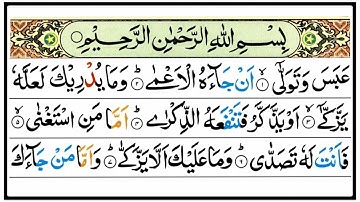 بِسْمِ اللهِ الرَّحْمٰنِ الرَّحِيْمِ
عَبَسَ وَتَوَلّٰٓىۙ ۱ اَنْ جَآءَهُ الْاَعْمٰىؕ ۲ وَمَا يُدْرِيْكَ لَعَلَّهٗ
يَزَّكّٰٓىۙ ۳ اَوْ يَذَّكَّرُ فَتَنْفَعَهُ الذِّكْرٰىؕ ۴ اَمَّا مَنِ اسْتَغْنٰىۙ ۵
فَاَنْتَ لَهٗ تَصَدّٰىؕ ۶ وَمَا عَلَيْكَ اَلَّا يَزَّكّٰىؕ ۷ وَاَمَّا مَنْ جَآءَكَ